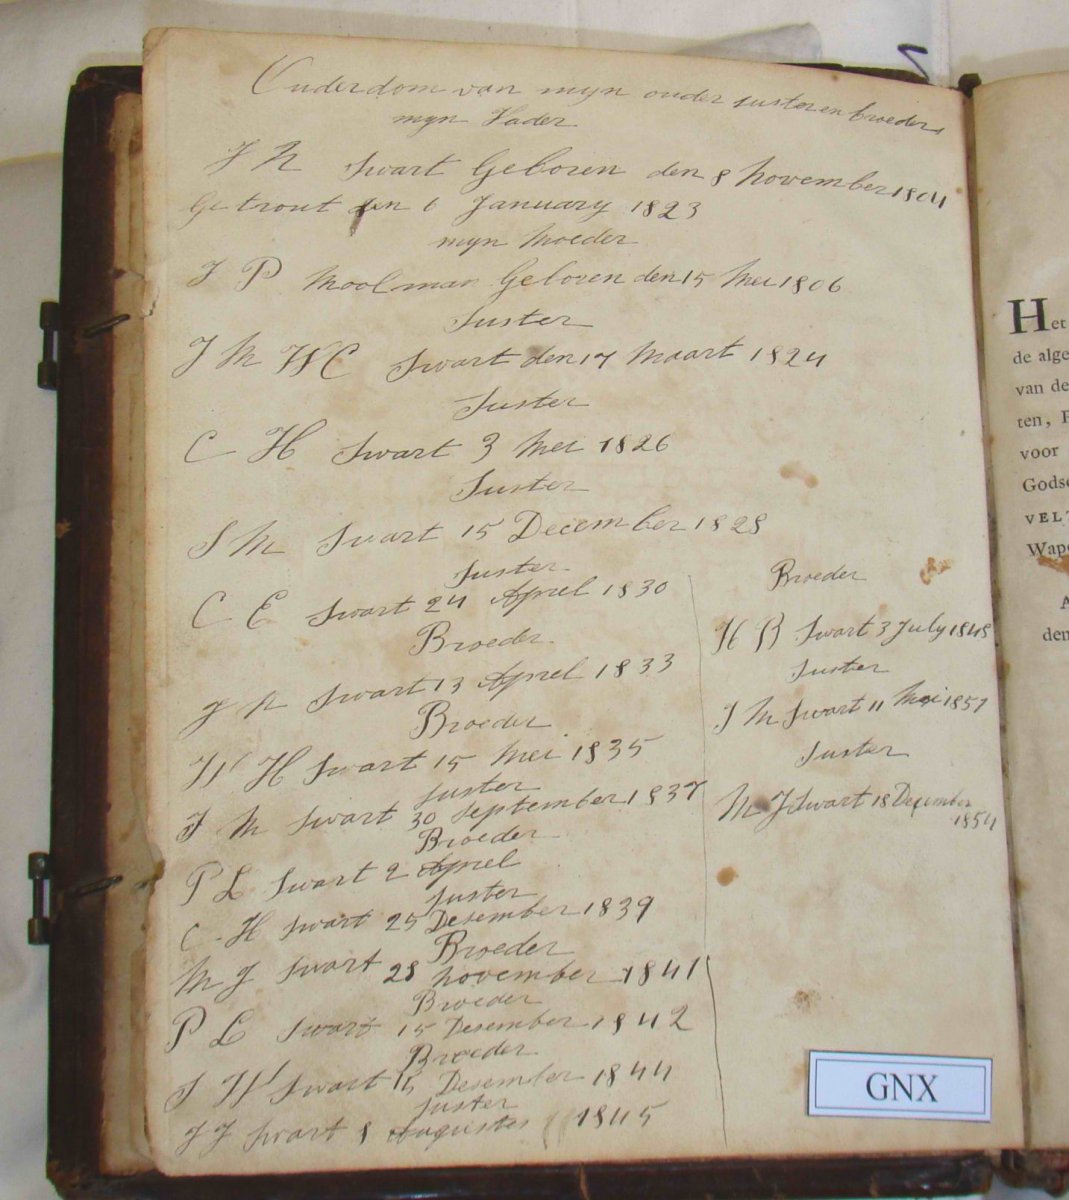 Ouderdom van myn ouder susteren broeders
myn Vader
J N Swart Geboren den 8 November 1804
Getrout den 6 January 1823
myn Moeder
J P Moolman Geboren den 15 Mei 1806
Suster
J M W C Swart den 17 Maart 1824
Suster
C H Swart 3 Mei 1826
Suster
S M Swart 15 December 1828
Suster
C E Swart 24 Aprel 1830
Broeder
J N Swart 13 Aprel 1833
Broeder
W H Swart 15 Mei 1835
Suster
J M Swart 30 September 1837
Broeder
P L Swart 2 Aprel
Suster
C H Swart 25 Desember 1839
Broeder
M J Swart 28 November 1841
Broeder
P L Swart 15 Desember 1842
Broeder
S W Swart 15 Desember 1844
Suster
J J Swart 8 Augustes 1845
Broeder
H B Swart 3 July 1848
Suster
J M Swart 11 Mei 1851
Suster
M J Swart 18 December
1854
Het
de alge
van de
ten,
voor
Gods
VELT
Wape
A
den
GNX